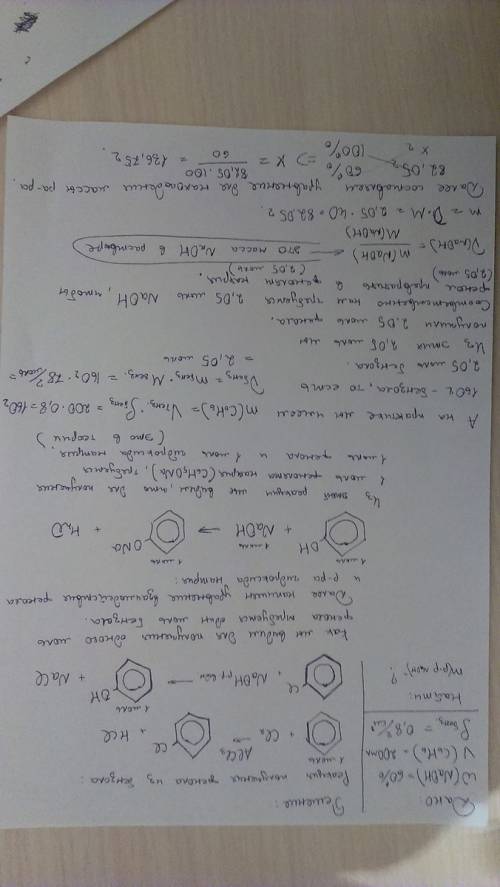 Дано:
W(NaOH)=60%
V(C6H6)=200мл
ρбенз. = 0,8 г/см³
Найти:
m(р-ра NaOH)-?
Решение:
Реакция получения фенола из бензола:
+ Cl2 →AlCl3 Cl + HCl
1 моль
Cl + NaOH р-р → OH + NaCl
1 моль
Как мы видим для получения одного моль
фенола требуется один моль бензола.
Далее напишем уравнение взаимодействия фенола
и р-ра гидроксида натрия:
OH + NaOH → ONa + H2O
1 моль 1 моль 1 моль
Из этой реакции мы видим, что для получения
1 моль фенолята натрия (C6H5ONa), требуется
1 моль фенола и 1 моль гидроксида натрия.
(это в теории)
А на практике мы имеем m(C6H6)= Vбенз.·ρбенз = 200·0,8=160г
160г - бензола, то есть νбенз= mбенз· Mбенз. = 160г·78г/моль=
2,05 моль бензола. = 2,05 моль
Из этих 2,05 моль мы
получили 2,05 моль фенола.
Соответственно нам требуется 2,05 моль NaOH, чтобы
фенол превратить в фенолят натрия.
(2,05 моль) (2,05 моль)
ν(NaOH) = m(NaOH)/M(NaOH) это масса NaOH в растворе
m = ν·M = 2,05·40=82,05г.
Далее составляем уравнение для нахождения массы р-ра.
82,05г 60%
x г 100% => x = 82,05·100/60 = 136,75г.